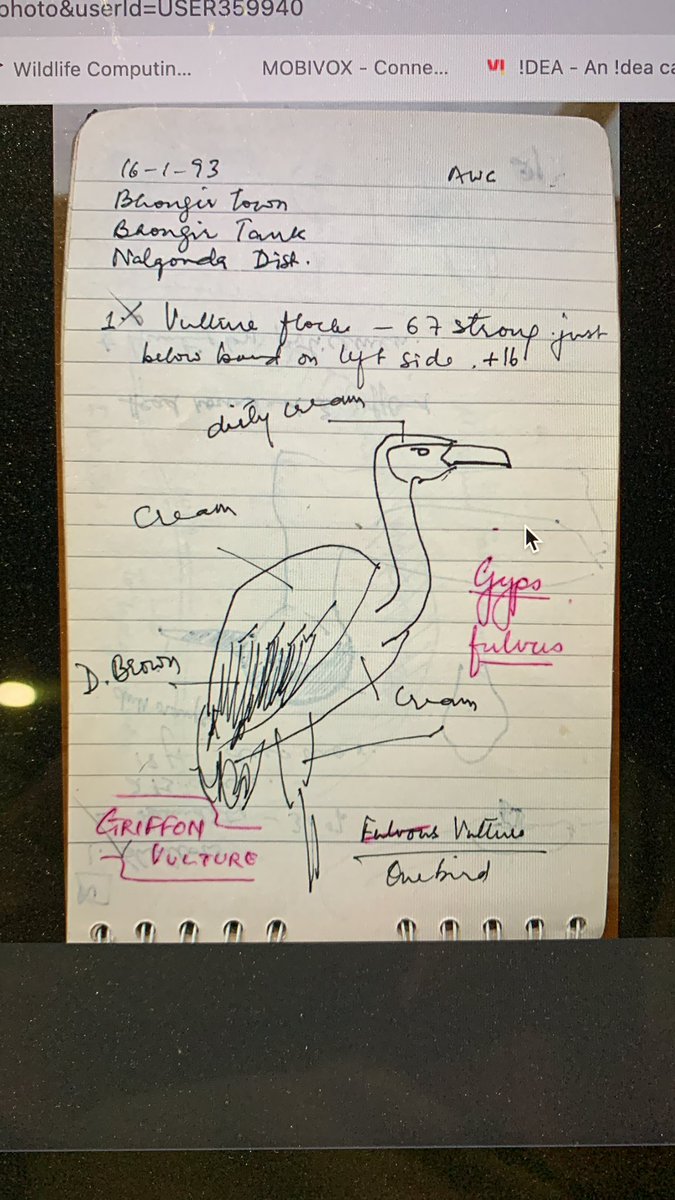 photo&userId=USER359940
Wildlife Computin... MOBIVOX - Conne... V! !DEA - An !dea ca
16-1-93 AWC
Bhongir Town
Bhongir Tank
Nalgonda Dist.
1. Vulture flock – 67 strong just
below bund on left side. +16
dirty cream
Cream
Gyps
fulvus
D. Brown
Cream
GRIFFON
VULTURE
Fulvous Vulture
One bird